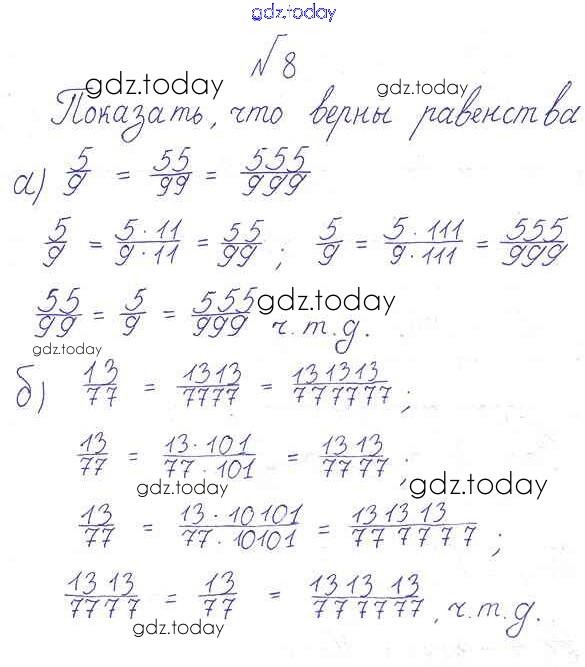 gdz.today
№ 8
gdz.today gdz.today
Показать, что верны равенства
а) 5/9 = 55/99 = 555/999
5/9 = 5·11/9·11 = 55/99; 5/9 = 5·111/9·111 = 555/999
55/99 = 5/9 = 555/999 ч.т.д.
gdz.today
gdz.today
б) 13/77 = 1313/7777 = 131313/777777;
13/77 = 13·101/77·101 = 1313/7777;
gdz.today gdz.today
13/77 = 13·10101/77·10101 = 131313/777777;
1313/7777 = 13/77 = 131313/777777, ч.т.д.
gdz.today